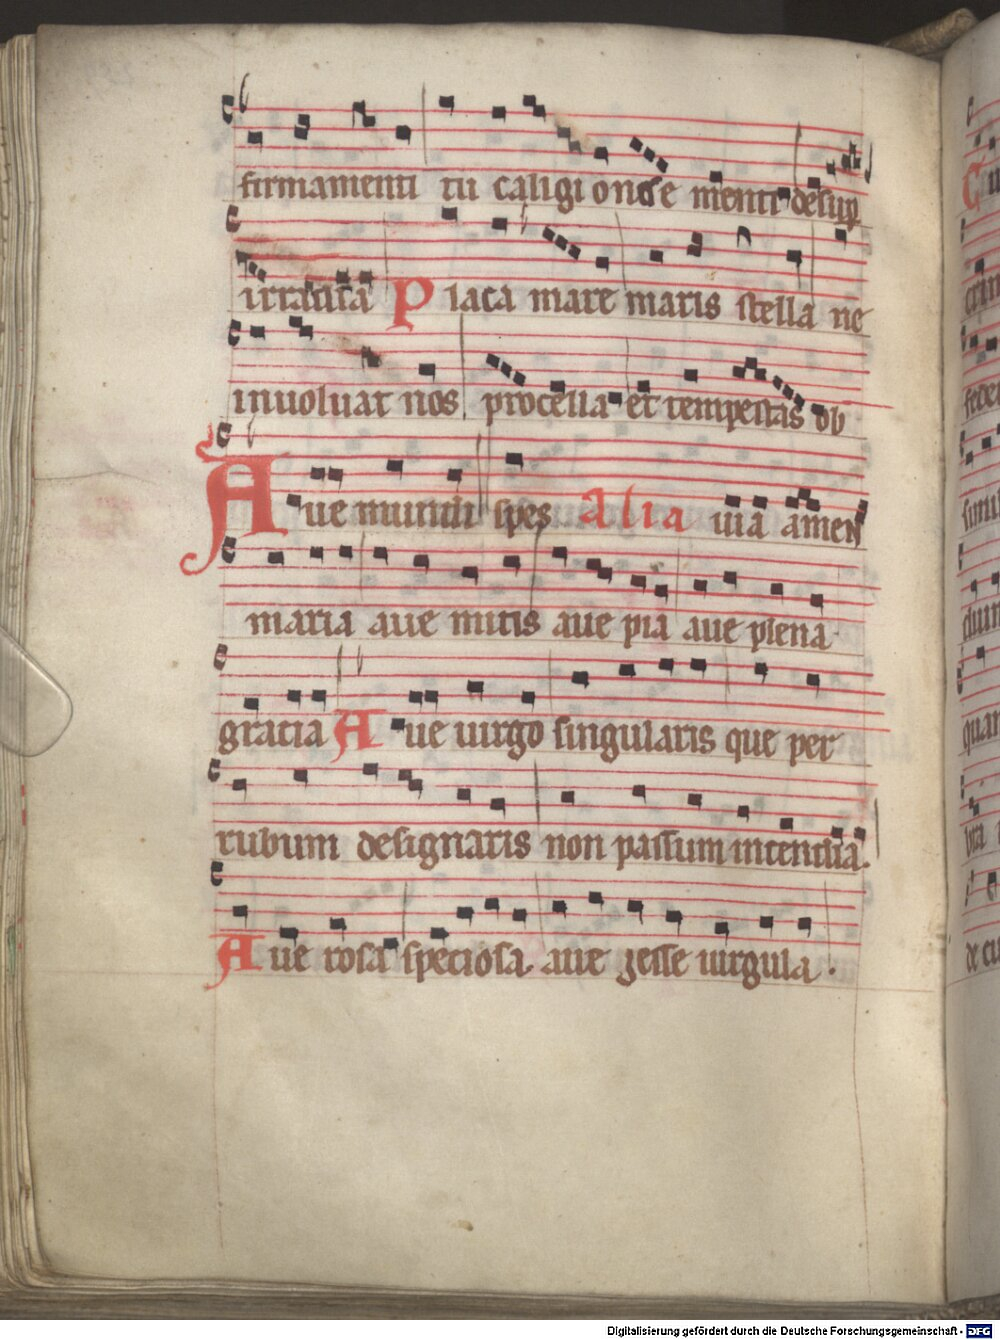 firmamenti tu caligionose menti desup
irradia Placa mare maris stella ne
inuoluat nos procella et tempestas ob
uia amen
Aue mundi spes Alia
maria aue mitis aue pia aue plena
gracia Aue uirgo singularis que per
rubum designaris non passum incendia.
Aue rosa speciosa. aue iesse uirgula.
Digitalisierung gefördert durch die Deutsche Forschungsgemeinschaft - DFG